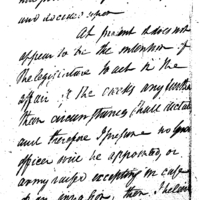 and
At present it does not
appear to be the intention of
the legislature to act in the
affair, or the carry any further
than circumstances shall dictate
and therefore I presume no General
officer will be appointed, or
army raised excepting in case
of an invasion, then I believe